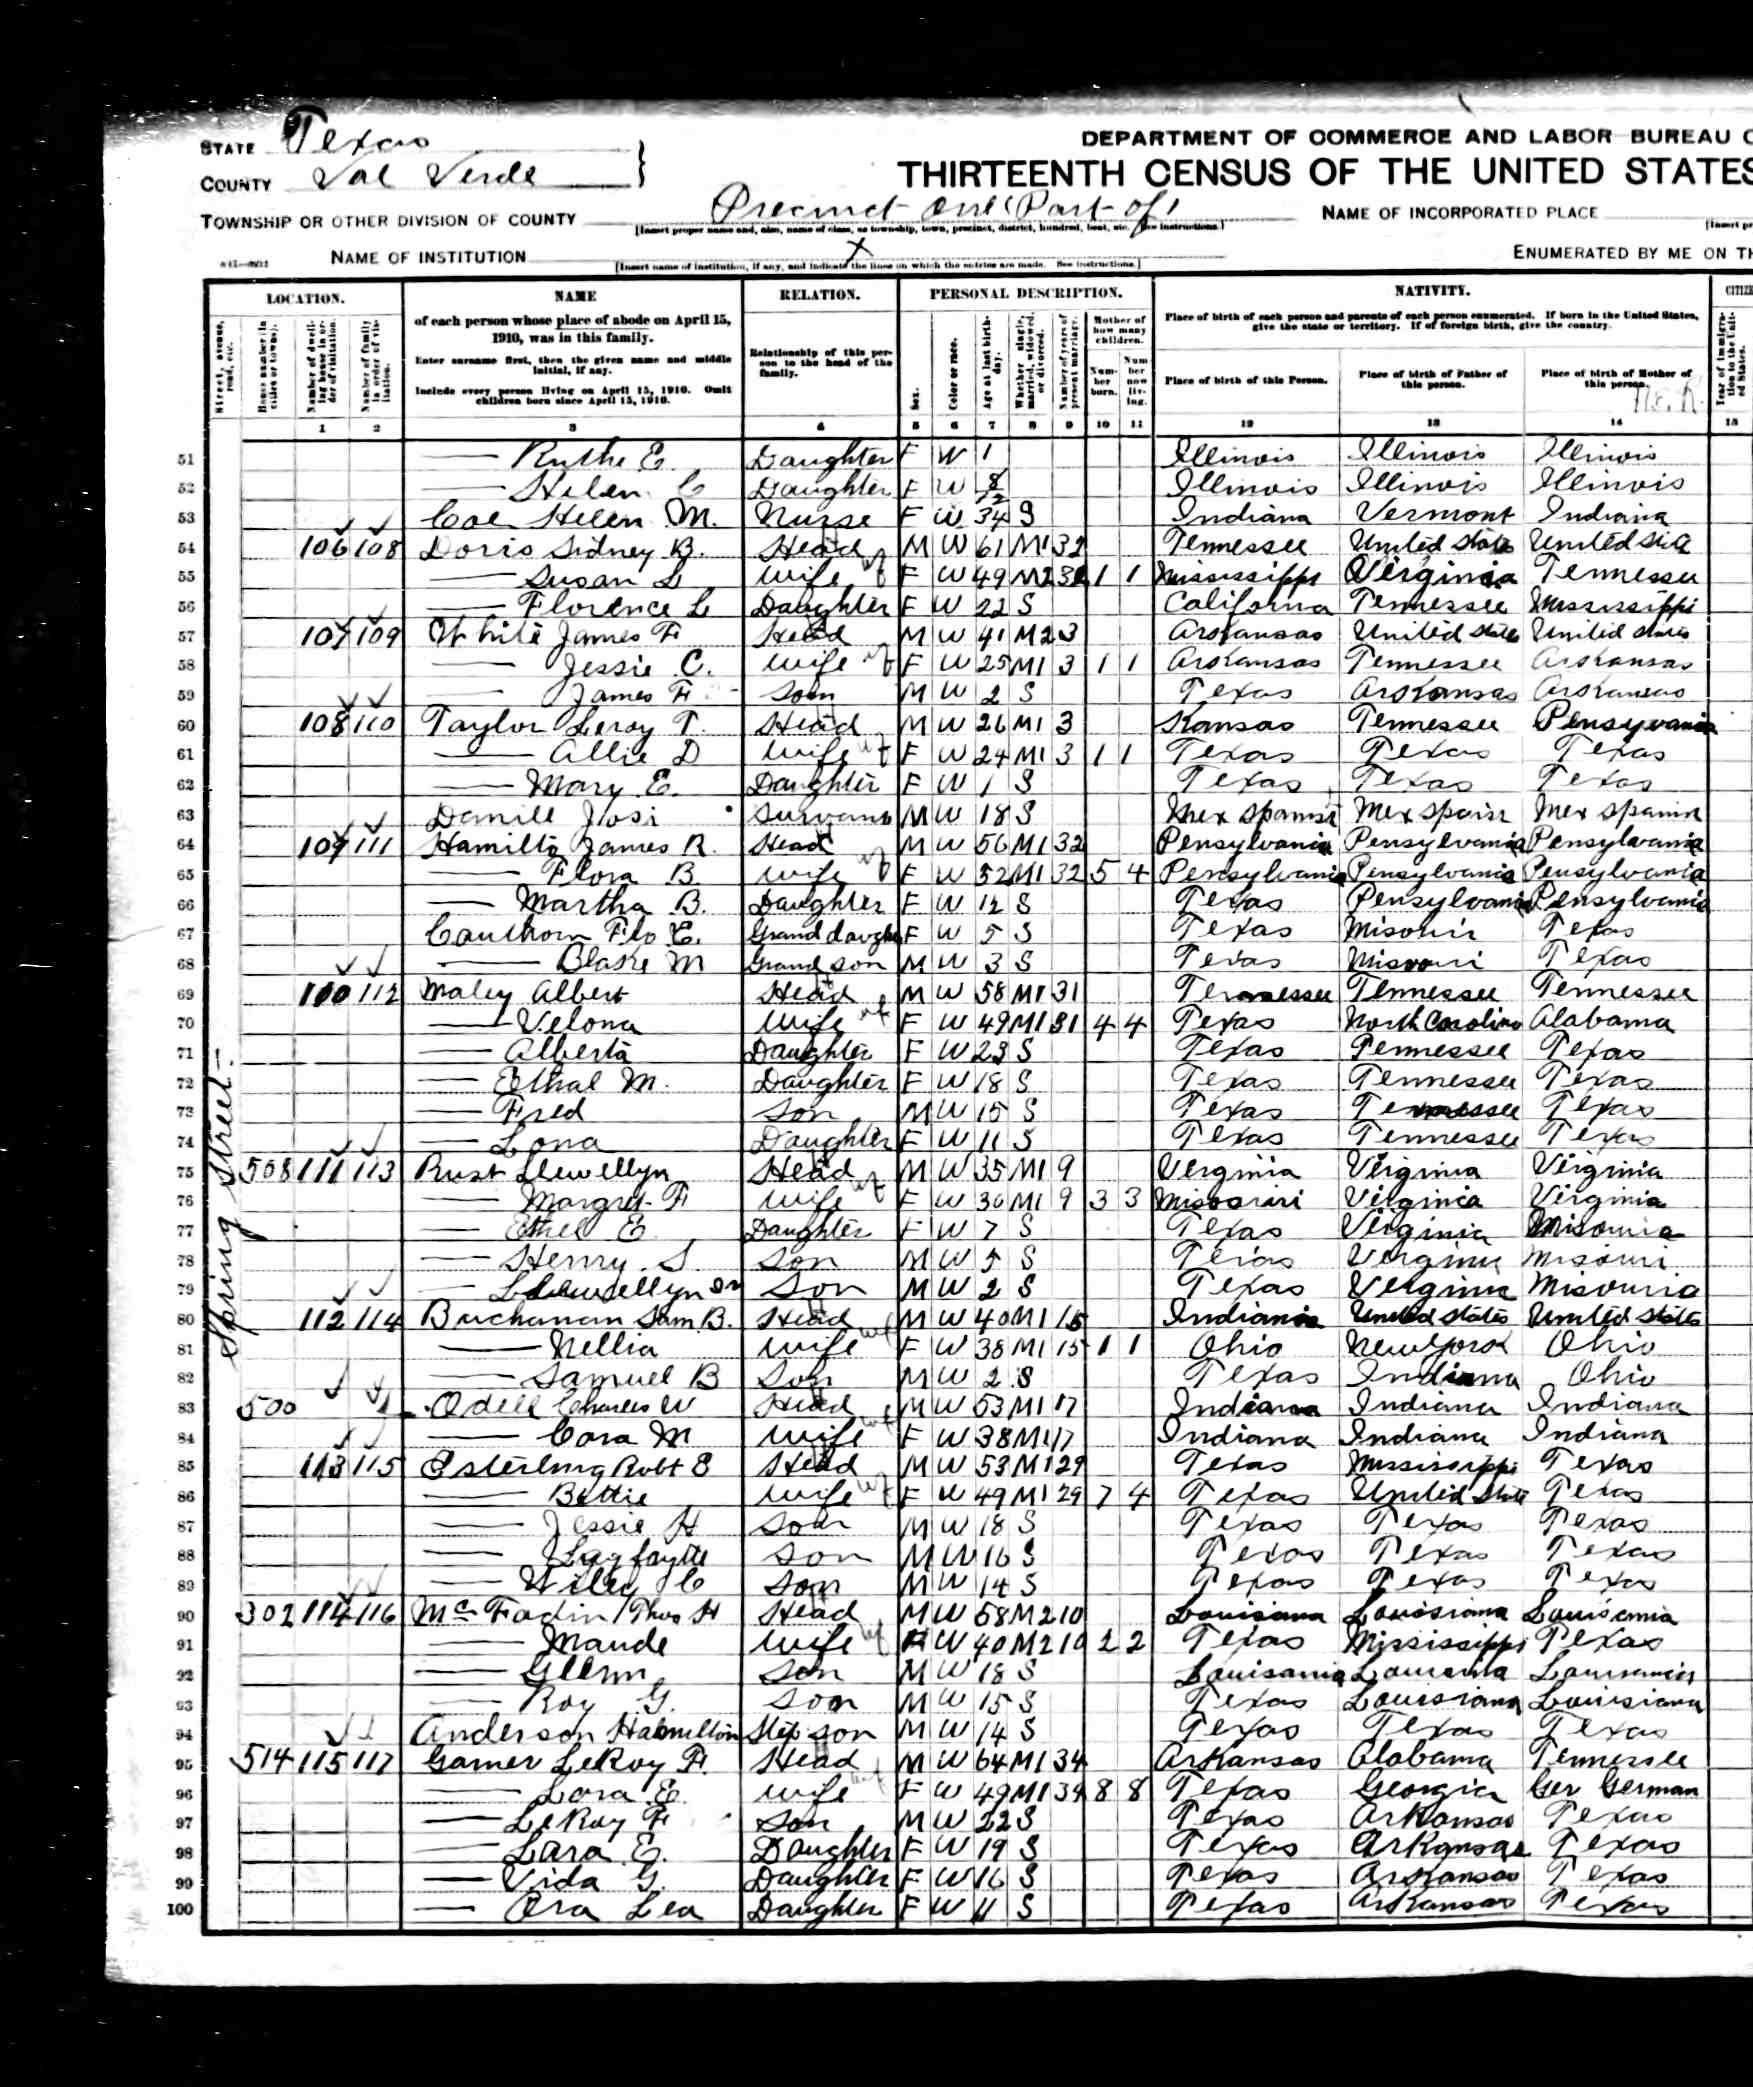 STATE Texas
DEPARTMENT OF COMMERCE AND LABOR BUREAU
COUNTY Val Verde
THIRTEENTH CENSUS OF THE UNITED STATES
TOWNSHIP OR OTHER DIVISION OF COUNTY Precinct One (Part of) NAME OF INCORPORATED PLACE
[Insert proper name and, also, name of class, as township, town, precinct, district, hundred, beat, etc. See instructions.]
NAME OF INSTITUTION X ENUMERATED BY ME ON
[Insert name of institution, if any, and indicate the lines on which the entries are made. See instructions.]
LOCATION. NAME RELATION. PERSONAL DESCRIPTION. NATIVITY.
Street, avenue, road, etc.
House number (in cities or towns).
Number of dwelling house in order of visitation.
Number of family in order of visitation.
of each person whose place of abode on April 15, 1910, was in this family.
Enter surname first, then the given name and middle initial, if any.
Include every person living on April 15, 1910. Omit children born since April 15, 1910.
Relationship of this person to the head of the family.
Sex.
Color or race.
Age at last birthday.
Whether single, married, widowed, or divorced.
Number of years of present marriage.
Mother of how many children.
Number born.
Number now living.
Place of birth of each person and parents of each person enumerated. If born in the United States, give the state or territory. If of foreign birth, give the country.
Place of birth of this Person.
Place of birth of Father of this person.
Place of birth of Mother of this person.
Year of immigration to the United States.
1 2 3 4 5 6 7 8 9 10 11 12 13 14 15
Spring Street
51 Ruthe E. Daughter F W 1 Illinois Illinois Illinois
52 Helen C Daughter F W 8/12 Illinois Illinois Illinois
53 Coe Helen M. Nurse F W 34 S Indiana Vermont Indiana
54 106 108 Doris Sidney B. Head M W 61 M1 32 Tennessee United States United Sta
55 Susan L Wife F W 49 M2 1 1 Mississippi Virginia Tennessee
56 Florence L Daughter F W 22 S California Tennessee Mississippi
57 107 109 White James F Head M W 41 M2 3 Arkansas United States United States
58 Jessie C. Wife F W 25 M1 3 1 1 Arkansas Tennessee Arkansas
59 James F Son M W 2 S Texas Arkansas Arkansas
60 108 110 Taylor Leroy T. Head M W 26 M1 3 Kansas Tennessee Pensyvania
61 Allie D Wife F W 24 M1 3 1 1 Texas Texas Texas
62 Mary E. Daughter F W 1 S Texas Texas Texas
63 Josi M W 18 S Mex Spanish Mex Mex
64 109 111 Hamilto James R. Head M W 56 M1 32 Pensylvania Pensylvania Pensylvania
65 Flora B. Wife F W 52 M1 32 5 4 Pensylvania Pensylvania Pensylvania
66 Martha B. Daughter F W 12 S Texas Pensylvania Pensylvania
67 Cauthorn Flo E. Grand daught F W 5 S Texas Misouri Texas
68 Blake M Grand son M W 3 S Texas Misouri Texas
69 110 112 Maley Albert Head M W 58 M1 31 Tennessee Tennessee Tennessee
70 Velona Wife F W 49 M1 31 4 4 Texas North Carolina Alabama
71 Alberta Daughter F W 23 S Texas Tennessee Texas
72 Ethal M. Daughter F W 18 S Texas Tennessee Texas
73 Fred Son M W 15 S Texas Tennessee Texas
74 Lona Daughter F W 11 S Texas Tennessee Texas
75 508 111 113 Rust Llewellyn Head M W 35 M1 9 Verginia Virginia Virginia
76 Margret F Wife F W 30 M1 9 3 3 Virginia Virginia
77 Ethel E Daughter F W 7 S Texas Virginia Misouria
78 Henry S. Son M W 5 S Texas Virginia Misouri
79 Son M W 2 S Texas Verginia Misouria
80 112 114 Buchanan Sam B. Head M W 40 M1 15 Indiana United States United States
81 Nellia Wife F W 38 M1 15 1 1 Ohio New York Ohio
82 Samuel B Son M W 2 S Texas Indiana Ohio
83 500 Odell Charles W Head M W 53 M1 17 Indiana Indiana Indiana
84 Cora M Wife F W 38 M1 17 Indiana Indiana Indiana
85 113 115 Esterling Robt E Head M W 53 M1 29 Texas Mississippi Texas
86 Bettie Wife F W 49 M1 29 7 4 Texas United State Texas
87 Jessie H Son M W 18 S Texas Texas Texas
88 Son M W 16 S Texas Texas Texas
89 Wiley C Son M W 14 S Texas Texas Texas
90 302 114 116 McFadin Thos H Head M W 58 M2 10 Louisiana Louisiana Louisiania
91 Maude Wife F W 40 M2 10 2 2 Texas Mississippi Texas
92 Glenn Son M W 18 S Louisania
93 Roy G. Son M W 15 S Texas Louisiana Louisiana
94 Anderson Hamilton Step son M W 14 S Texas Texas Texas
95 514 115 117 Garner LeRoy F. Head M W 64 M1 34 Arkansas Alabama Tennessee
96 Lora E. Wife F W 49 M1 34 8 8 Texas Georgia Ger German
97 LeRoy F Son M W 22 S Texas Arkansas Texas
98 Lara E. Daughter F W 19 S Texas Arkansas Texas
99 Vida G. Daughter F W 16 S Texas Arkansas Texas
100 Ora Lea Daughter F W 11 S Texas Arkansas Texas